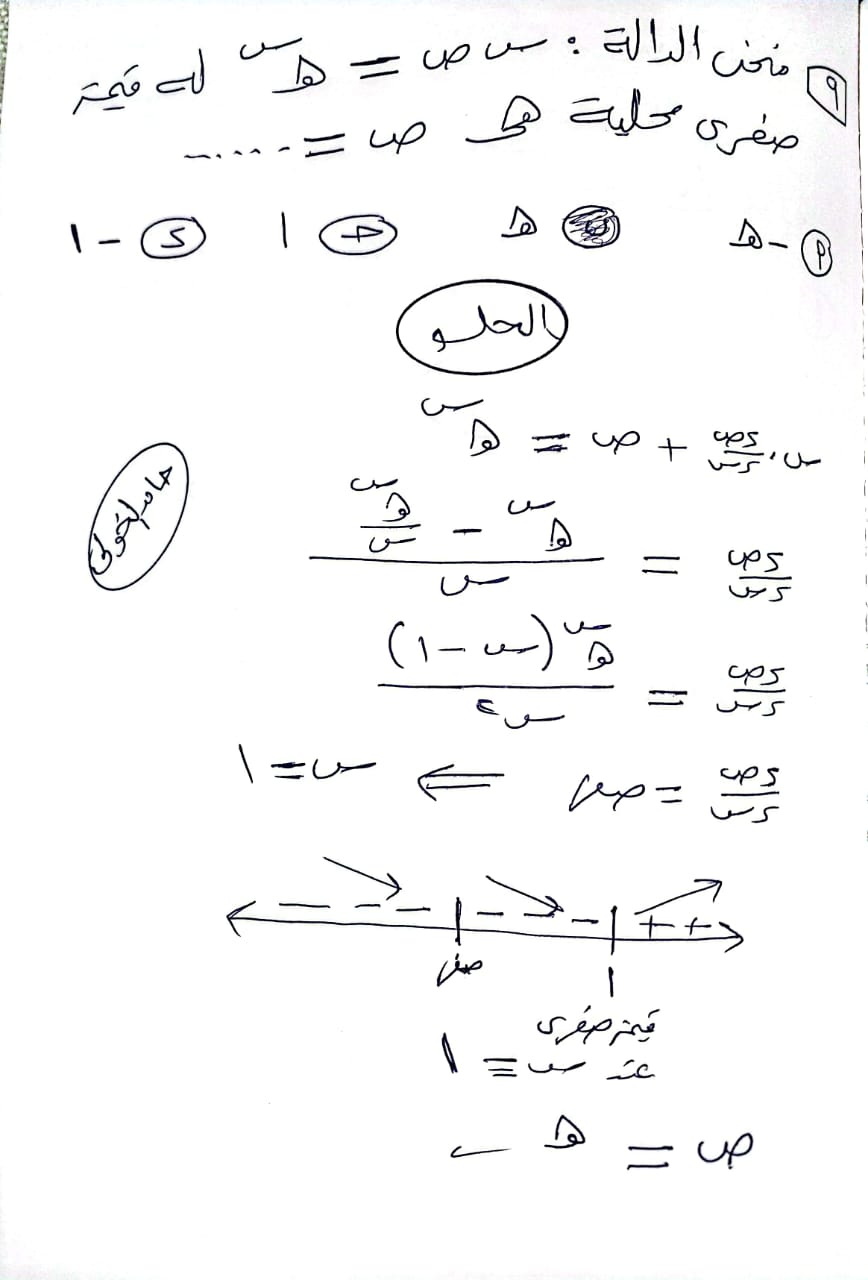 ٩ منحنى الدالة : س ص = هـ^س له قيمة
صغرى محلية هى ص = .......
أ -هـ هـ جـ ١ د -١
الحلــو
س . دص/دس + ص = هـ^س
دص/دس = (هـ^س - هـ^س/س)/س
دص/دس = هـ^س (س - ١)/س^٢
دص/دس = صفر ⇐ س = ١
- - - - - - + +
صفر ١
قيمة صغرى
عند س = ١
ص = هـ